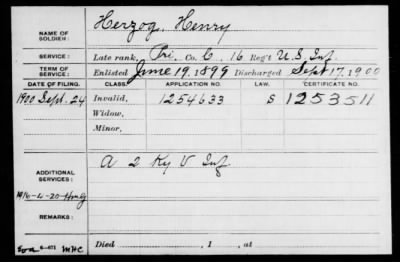 NAME OF SOLDIER: Herzog, Henry
SERVICE: Late rank, Pri, Co. C, 16 Reg't U.S. Inf.
TERM OF SERVICE: Enlisted June 19, 1899 Discharged Sept 17, 1900
DATE OF FILING. CLASS. APPLICATION NO. LAW. CERTIFICATE NO.
1900 Sept. 24 Invalid, 1254633 S 1253511
Widow,
Minor,
ADDITIONAL SERVICES: A 2 Ky V Inf
REMARKS:
Died , 1 , at
6-471 MHC